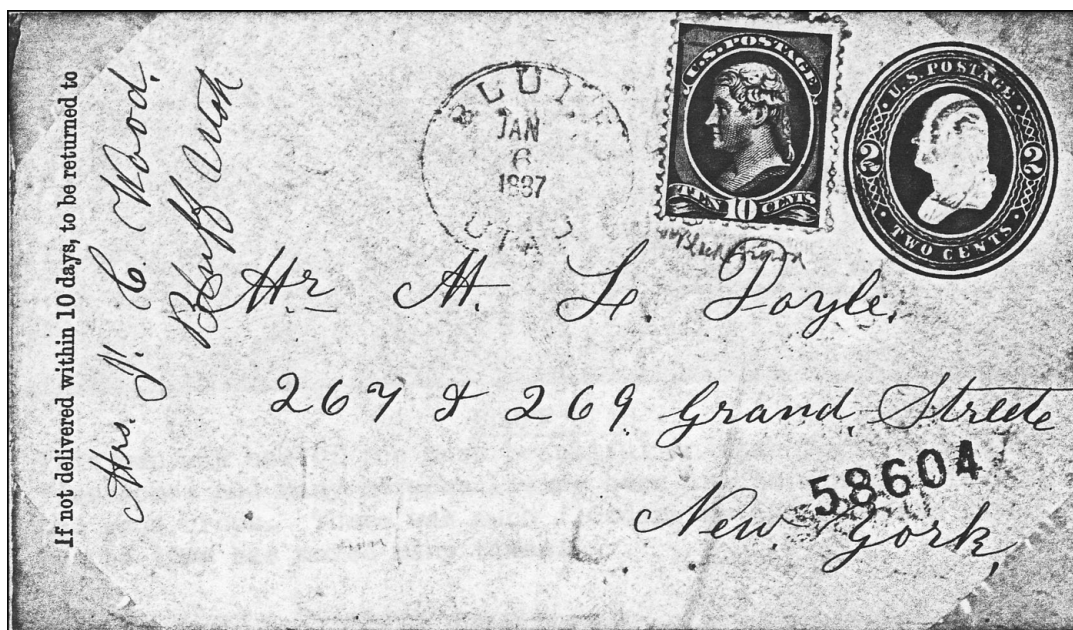 If not delivered within 10 days, to be returned to
Mrs. J. C. Wood,
Bluff Utah
BLUFF
JAN
6
1887
UTAH
U.S. POSTAGE
TEN 10 CENTS
U.S. POSTAGE
2 2
TWO CENTS
Mr M. L. Doyle.
267 & 269. Grand, Streete
58604
New York,